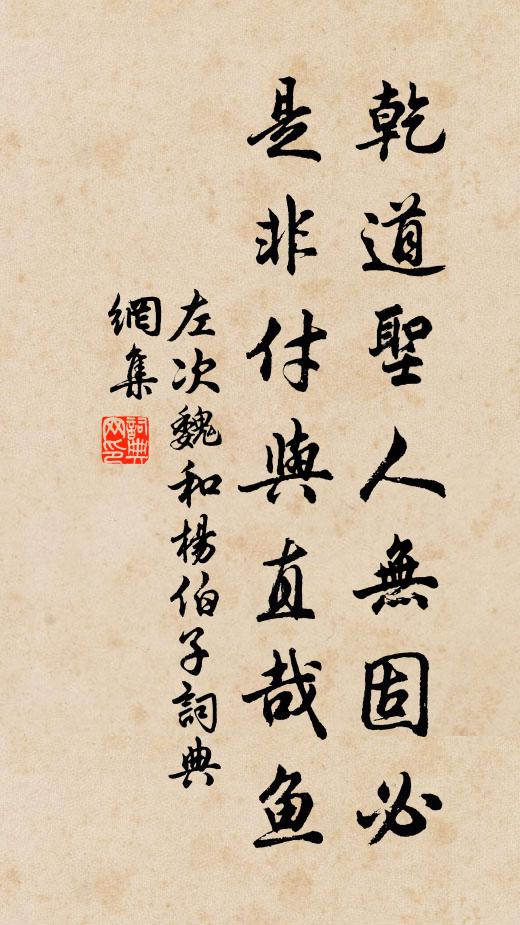 乾道聖人無固必
是非付與直哉鱼
左次魏和楊伯子詞典
網集
詞典網印